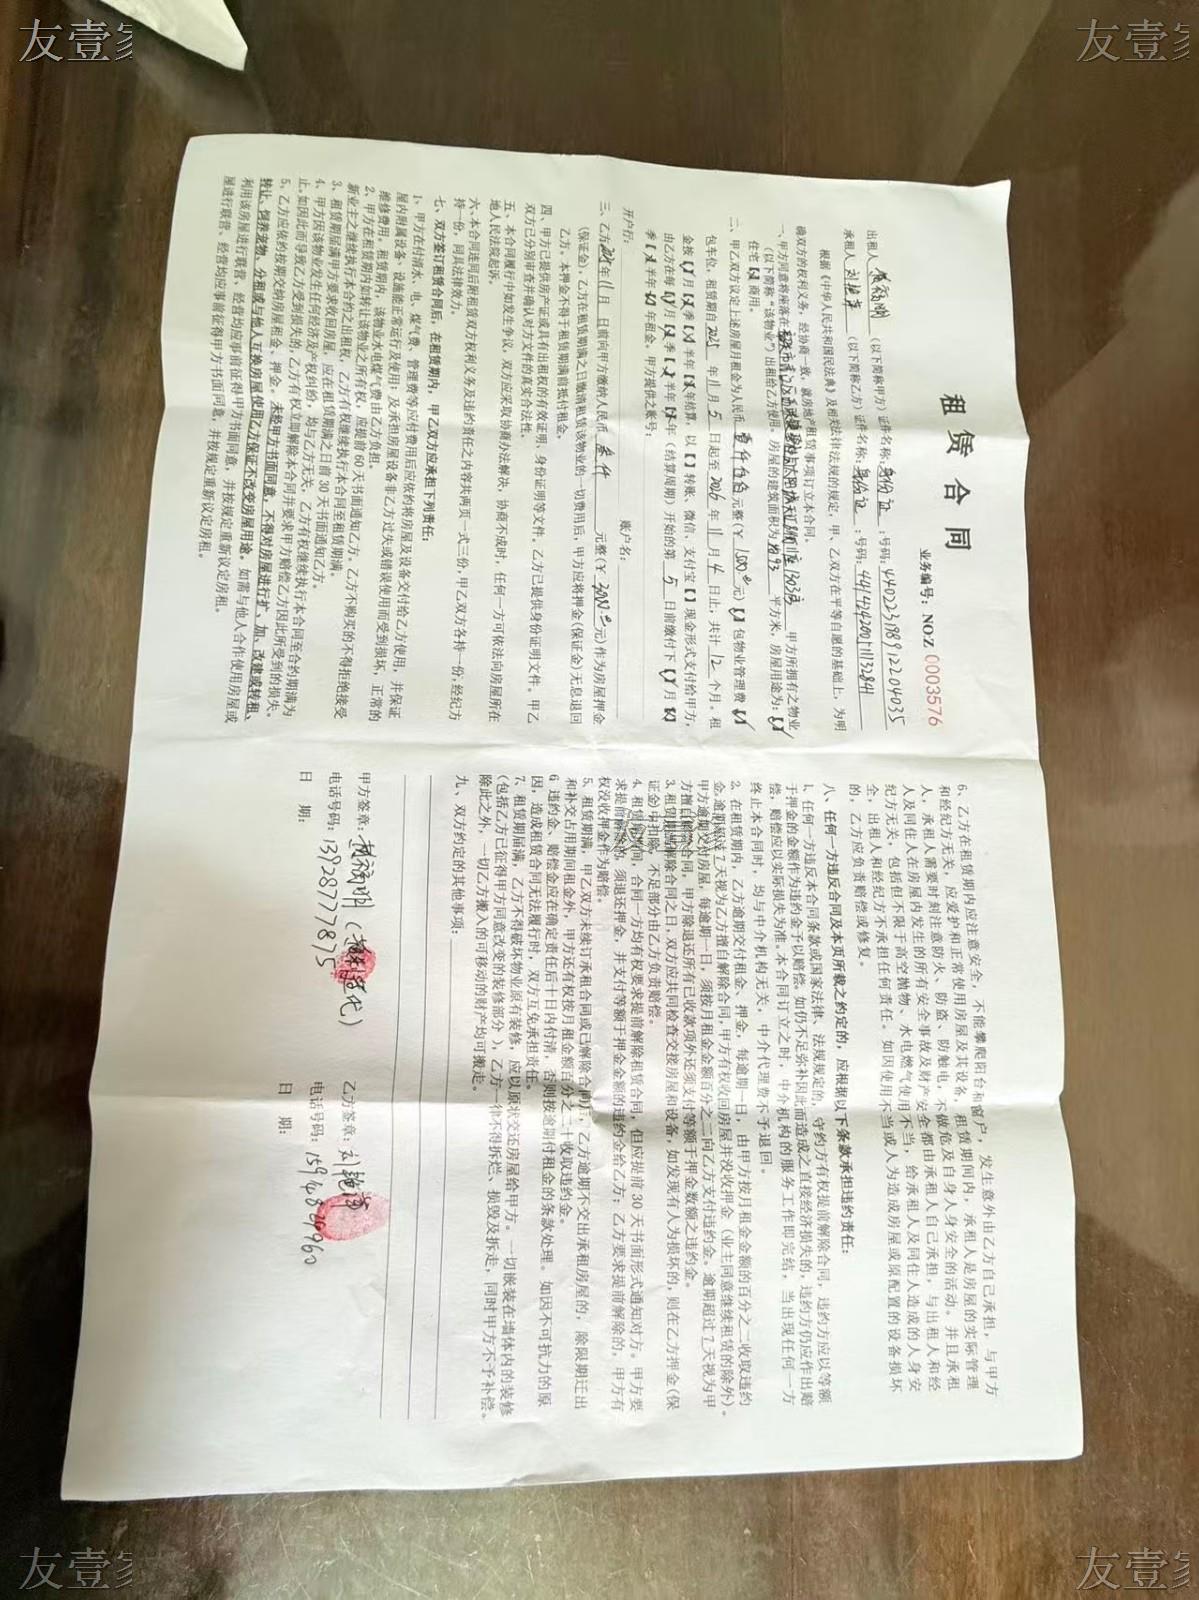 友壹家
友壹家
租赁合同
业务编号：NO.Z 0003576
出租人 （以下简称甲方）证件名称：身份证：号码：440223198912204035
承租人 （以下简称乙方）证件名称：身份证：号码：
根据《中华人民共和国民法典》及相关法律法规的规定，甲、乙双方在平等自愿的基础上，为明
确双方的权利义务，经协商一致，就房地产租赁事项订立本合同。
一、甲方同意将座落在 甲方所拥有之物业/
（以下简称“该物业”）出租给乙方使用。房屋的建筑面积为 平方米，房屋用途为：【】
住宅【】商用。
二、甲乙双方议定上述房屋月租金为人民币 壹仟伍佰 元整（¥ 1500 元）【】包物业管理费【】
包车位，租赁期自 2025 年 11 月 5 日起至 2026 年 11 月 4 日止，共计 12 个月。租
金按【】月【】季【】半年【】年结算，以【】转账、微信、支付宝【】现金形式支付给甲方，
由乙方在每【】月【】季【】半年【】年（结算周期）开始的第 5 日前缴付下【】月【】
季【】半年【】年租金。甲方提供之账号：
开户行： 账户名：
三、乙方 年 11 月 日前向甲方缴纳人民币 叁仟 元整（¥ 3000 元）作为房屋押金
（保证金），乙方在租赁期满之日缴清租赁该物业的一切费用后，甲方应将押金（保证金）无息退回
乙方。本押金不得于租赁期满前抵付租金。
四、甲方已提供房产证或具有出租权的有效证明、身份证明等文件。乙方已提供身份证明文件。甲乙
双方已分别审查并确认对方文件的真实合法性。
五、本合同履行中如发生争议，双方应采取协商办法解决，协商不成时，任何一方可依法向房屋所在
地人民法院起诉。
六、本合同连同后附租赁双方权利义务及违约责任之内容共两页一式三份，甲乙双方各持一份，经纪方
持一份，同具法律效力。
七、双方签订租赁合同后，在租赁期内，甲乙双方应承担下列责任：
1、甲方在付清水、电、煤气费、管理费等应付费用后应依约将房屋及设备交付给乙方使用，并保证
屋内附属设备、设施能正常运行及使用；及承担房屋设备非乙方过失或错误使用而受到损坏，正常的
维修费用。租赁期内，该物业水电煤气费由乙方负担。
2、甲方在租赁期内如转让该物业之所有权，应提前 60 天书面通知乙方，乙方不购买的不得拒绝接受
新业主之继续执行本合约之出租权，乙方有权继续执行本合同至租赁期满。
3、租赁期届满甲方要求收回房屋，应在租赁期满之日前 30 天书面通知乙方。
4、甲方因该物业发生任何经济及产权纠纷，均与乙方无关，乙方有权继续执行本合同至合约期满为
止。如因此而导致乙方受到损失的，乙方有权立即解除本合同并要求甲方赔偿乙方因此所受到的损失。
5、乙方应依约按期交纳房屋租金、押金。未经甲方书面同意，不得对房屋进行扩、加、改建或转租、
转让、饲养宠物、分租或与他人互换房屋使用乙方保证不改变房屋用途。如需与他人合作使用房屋或
利用该房屋进行联营、经营均应事前征得甲方书面同意，并按规定重新议定房租。
屋进行联营、经营均应事前征得甲方书面同意，并按规定重新议定房租。
6、乙方在租赁期内应注意安全，不能攀爬阳台和窗户，发生意外由乙方自己承担，与甲方
和经纪方无关，应爱护和正常使用房屋及其设备，租赁期间内，承租人是房屋的实际管理
人，承租人需要时刻注意防火、防盗、防触电，不做危及自身人身安全的活动。并且承租
人及同住人在房屋内发生的所有安全事故及财产安全都由承租人自己承担，与出租人和经
纪方无关，包括但不限于高空抛物、水电燃气使用不当，给承租人及同住人造成的人身安
全，出租人和经纪方不承担任何责任。如因使用不当或人为造成房屋或原配置的设备损坏
的，乙方应负责赔偿或修复。
八、任何一方违反合同及本页所载之约定的，应根据以下条款承担违约责任：
1、任何一方违反本合同条款或国家法律、法规规定的，守约方有权提前解除合同，违约方应以等额
于押金的金额作为违约金予以赔偿，如仍不足弥补因此而造成之直接经济损失的，违约方仍应作出赔
偿，赔偿应以实际损失为准。本合同订立之时，中介机构的服务工作即完结，当出现任何一方
终止本合同时，均与中介机构无关，中介代理费不予退回。
2、在租赁期内，乙方逾期交付租金、押金，每逾期一日，由甲方按月租金金额的百分之二收取违约
金，逾期超过 7 天视为乙方擅自解除合同，甲方有权收回房屋并没收押金（业主同意继续租赁的除外）。
甲方逾期交付房屋，每逾期一日，须按月租金金额百分之二向乙方支付违约金。逾期超过 7 天视为甲
方擅自解除合同，甲方除退还所有已收款项外还须支付等额于押金数额之违约金。
3、租赁期届满解除合同之日，双方应共同检查交接房屋和设备，如发现有人为损坏的，则在乙方押金（保
证金）中扣除，不足部分由乙方负责赔偿。
4、租赁期间，合同一方均有权要求提前解除租赁合同，但应提前 30 天书面形式通知对方。甲方要
求提前解除的，须退还押金，并支付等额于押金金额的违约金给乙方；乙方要求提前解除的，甲方有
权没收押金作为赔偿。
5、租赁期满，甲乙双方未续订承租合同或已解除合同后，乙方逾期不交出承租房屋的，除限期迁出
和补交占用期间租金外，甲方还有权按月租金额百分之二十收取违约金。
6 违约金、赔偿金应在确定责任后十日内付清，否则按逾期付租金的条款处理。如因不可抗力的原
因，造成租赁合同无法履行时，双方互免承担责任。
7、租赁期届满，乙方不得破坏物业原有装修，应以原状交还房屋给甲方。一切嵌装在墙体内的装修
（包括乙方已征得甲方同意改变的装修部分），乙方一律不得拆烂、损毁及拆走，同时甲方不予补偿。
除此之外，一切乙方搬入的可移动的财产均可搬走。
九、双方约定的其他事项：
甲方签章： 乙方签章：
电话号码：13928777875 电话号码：15914082960
日 期： 日 期：
友壹家
友壹家